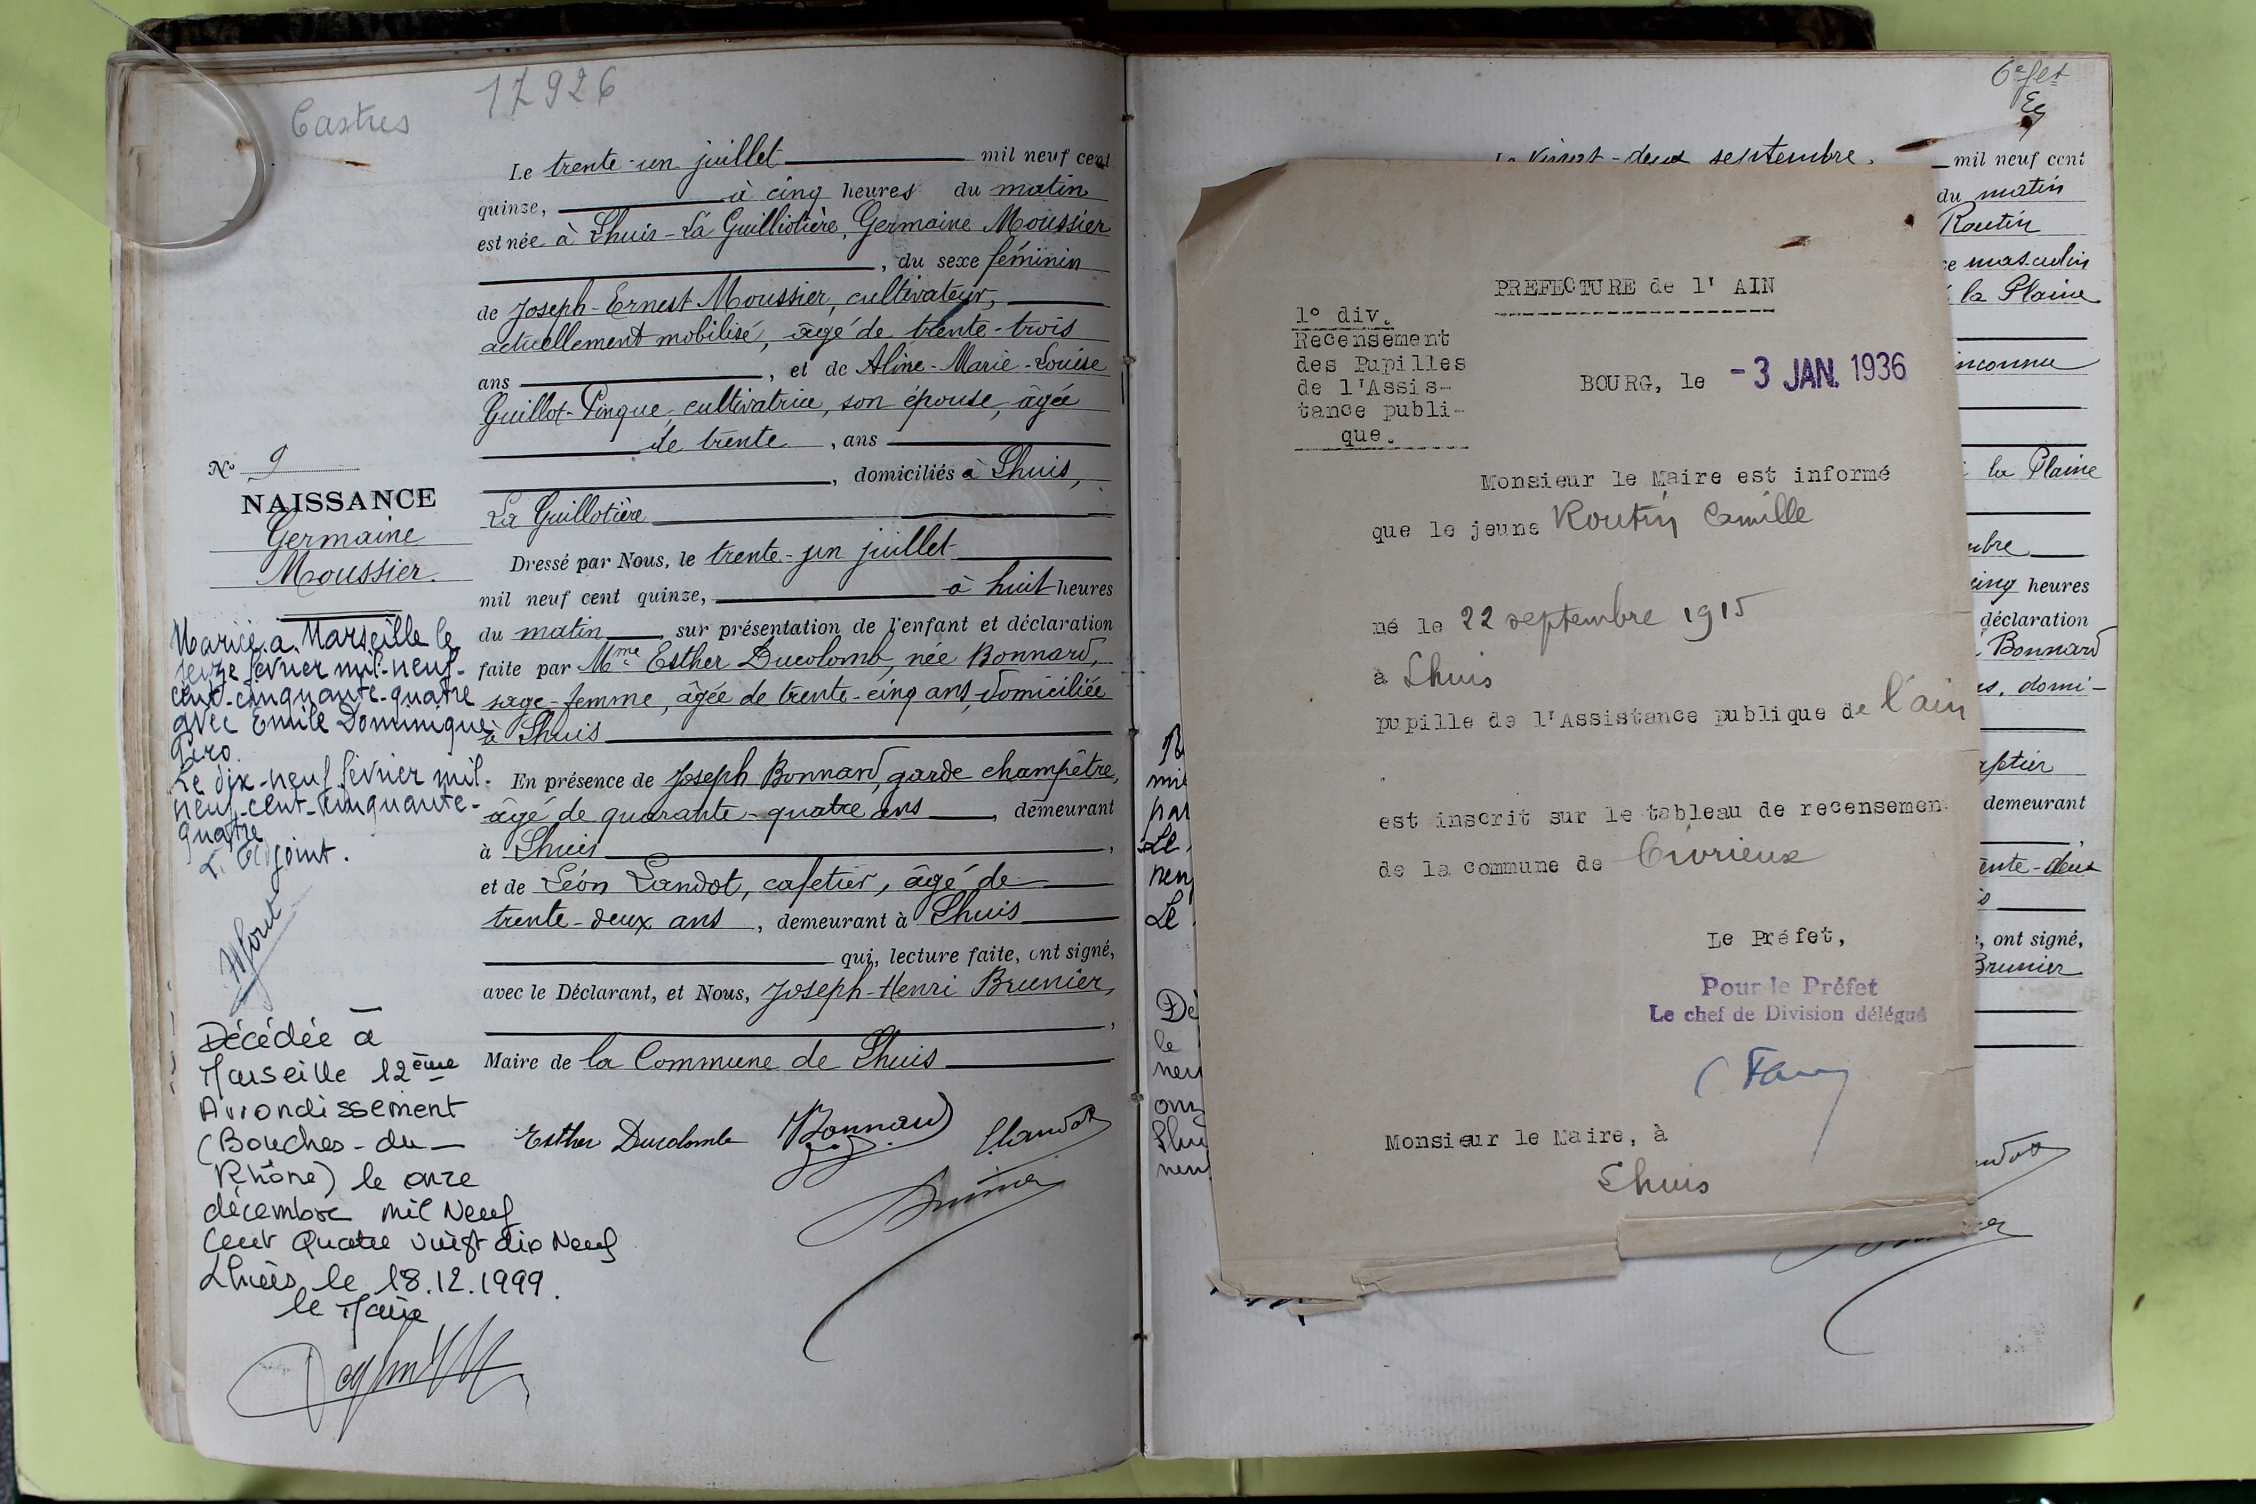 Castres
17926
Le trente-un juillet mil neuf cent
quinze, à cinq heures du matin
est née à Lhuis - La Guillotière, Germaine Moussier
, du sexe féminin
de Joseph-Ernest Moussier, cultivateur,
actuellement mobilisé, âgé de trente-trois
ans , et de Aline-Marie-Louise
Guillot-Pingue, cultivatrice, son épouse, âgée
de trente , ans
, domiciliés à Lhuis,
La Guillotière
Dressé par Nous, le trente-un juillet
mil neuf cent quinze, à huit heures
du matin , sur présentation de l'enfant et déclaration
faite par Mme Esther Ducolomb, née Bonnard,
sage-femme, âgée de trente-cinq ans, domiciliée
à Lhuis
En présence de Joseph Bonnard, garde champêtre,
âgé de quarante-quatre ans , demeurant
à Lhuis ,
et de Léon Landot, cafetier, âgé de
trente-deux ans , demeurant à Lhuis
qui, lecture faite, ont signé,
avec le Déclarant, et Nous, Joseph-Henri Brunier,
,
Maire de la Commune de Lhuis
Esther Ducolomb Bonnard Llandot
Brunier
No 9
NAISSANCE
Germaine
Moussier.
Mariée à Marseille le
seize février mil-neuf-
cent-cinquante-quatre
avec Emile Dominique
Piro.
Le dix-neuf février mil-
neuf-cent-cinquante-
quatre
L'Adjoint.
Décédée à
Marseille 12ème
Arrondissement
(Bouches-du-
Rhône) le onze
décembre mil Neuf
Cent Quatre vingt dix Neuf
Lhuis le 18.12.1999.
le Maire
6e flet
Le vingt-deux septembre mil neuf cent
du matin
Routin
masculin
la Plaine
inconnu
la Plaine
cinq heures
déclaration
Bonnard
domi-
demeurant
, ont signé,
Brunier
Le
Le
le
PREFECTURE de l' AIN
1° div.
Recensement
des Pupilles
de l'Assis-
tance publi-
que.
BOURG, le -3 JAN. 1936
Monsieur le Maire est informé
que le jeune Routin Camille
né le 22 septembre 1915
à Lhuis
pupille de l'Assistance publique de l'ain
est inscrit sur le tableau de recensemen
de la commune de Civrieux
Le Préfet,
Pour le Préfet
Le chef de Division délégué
Monsieur le Maire, à
Lhuis